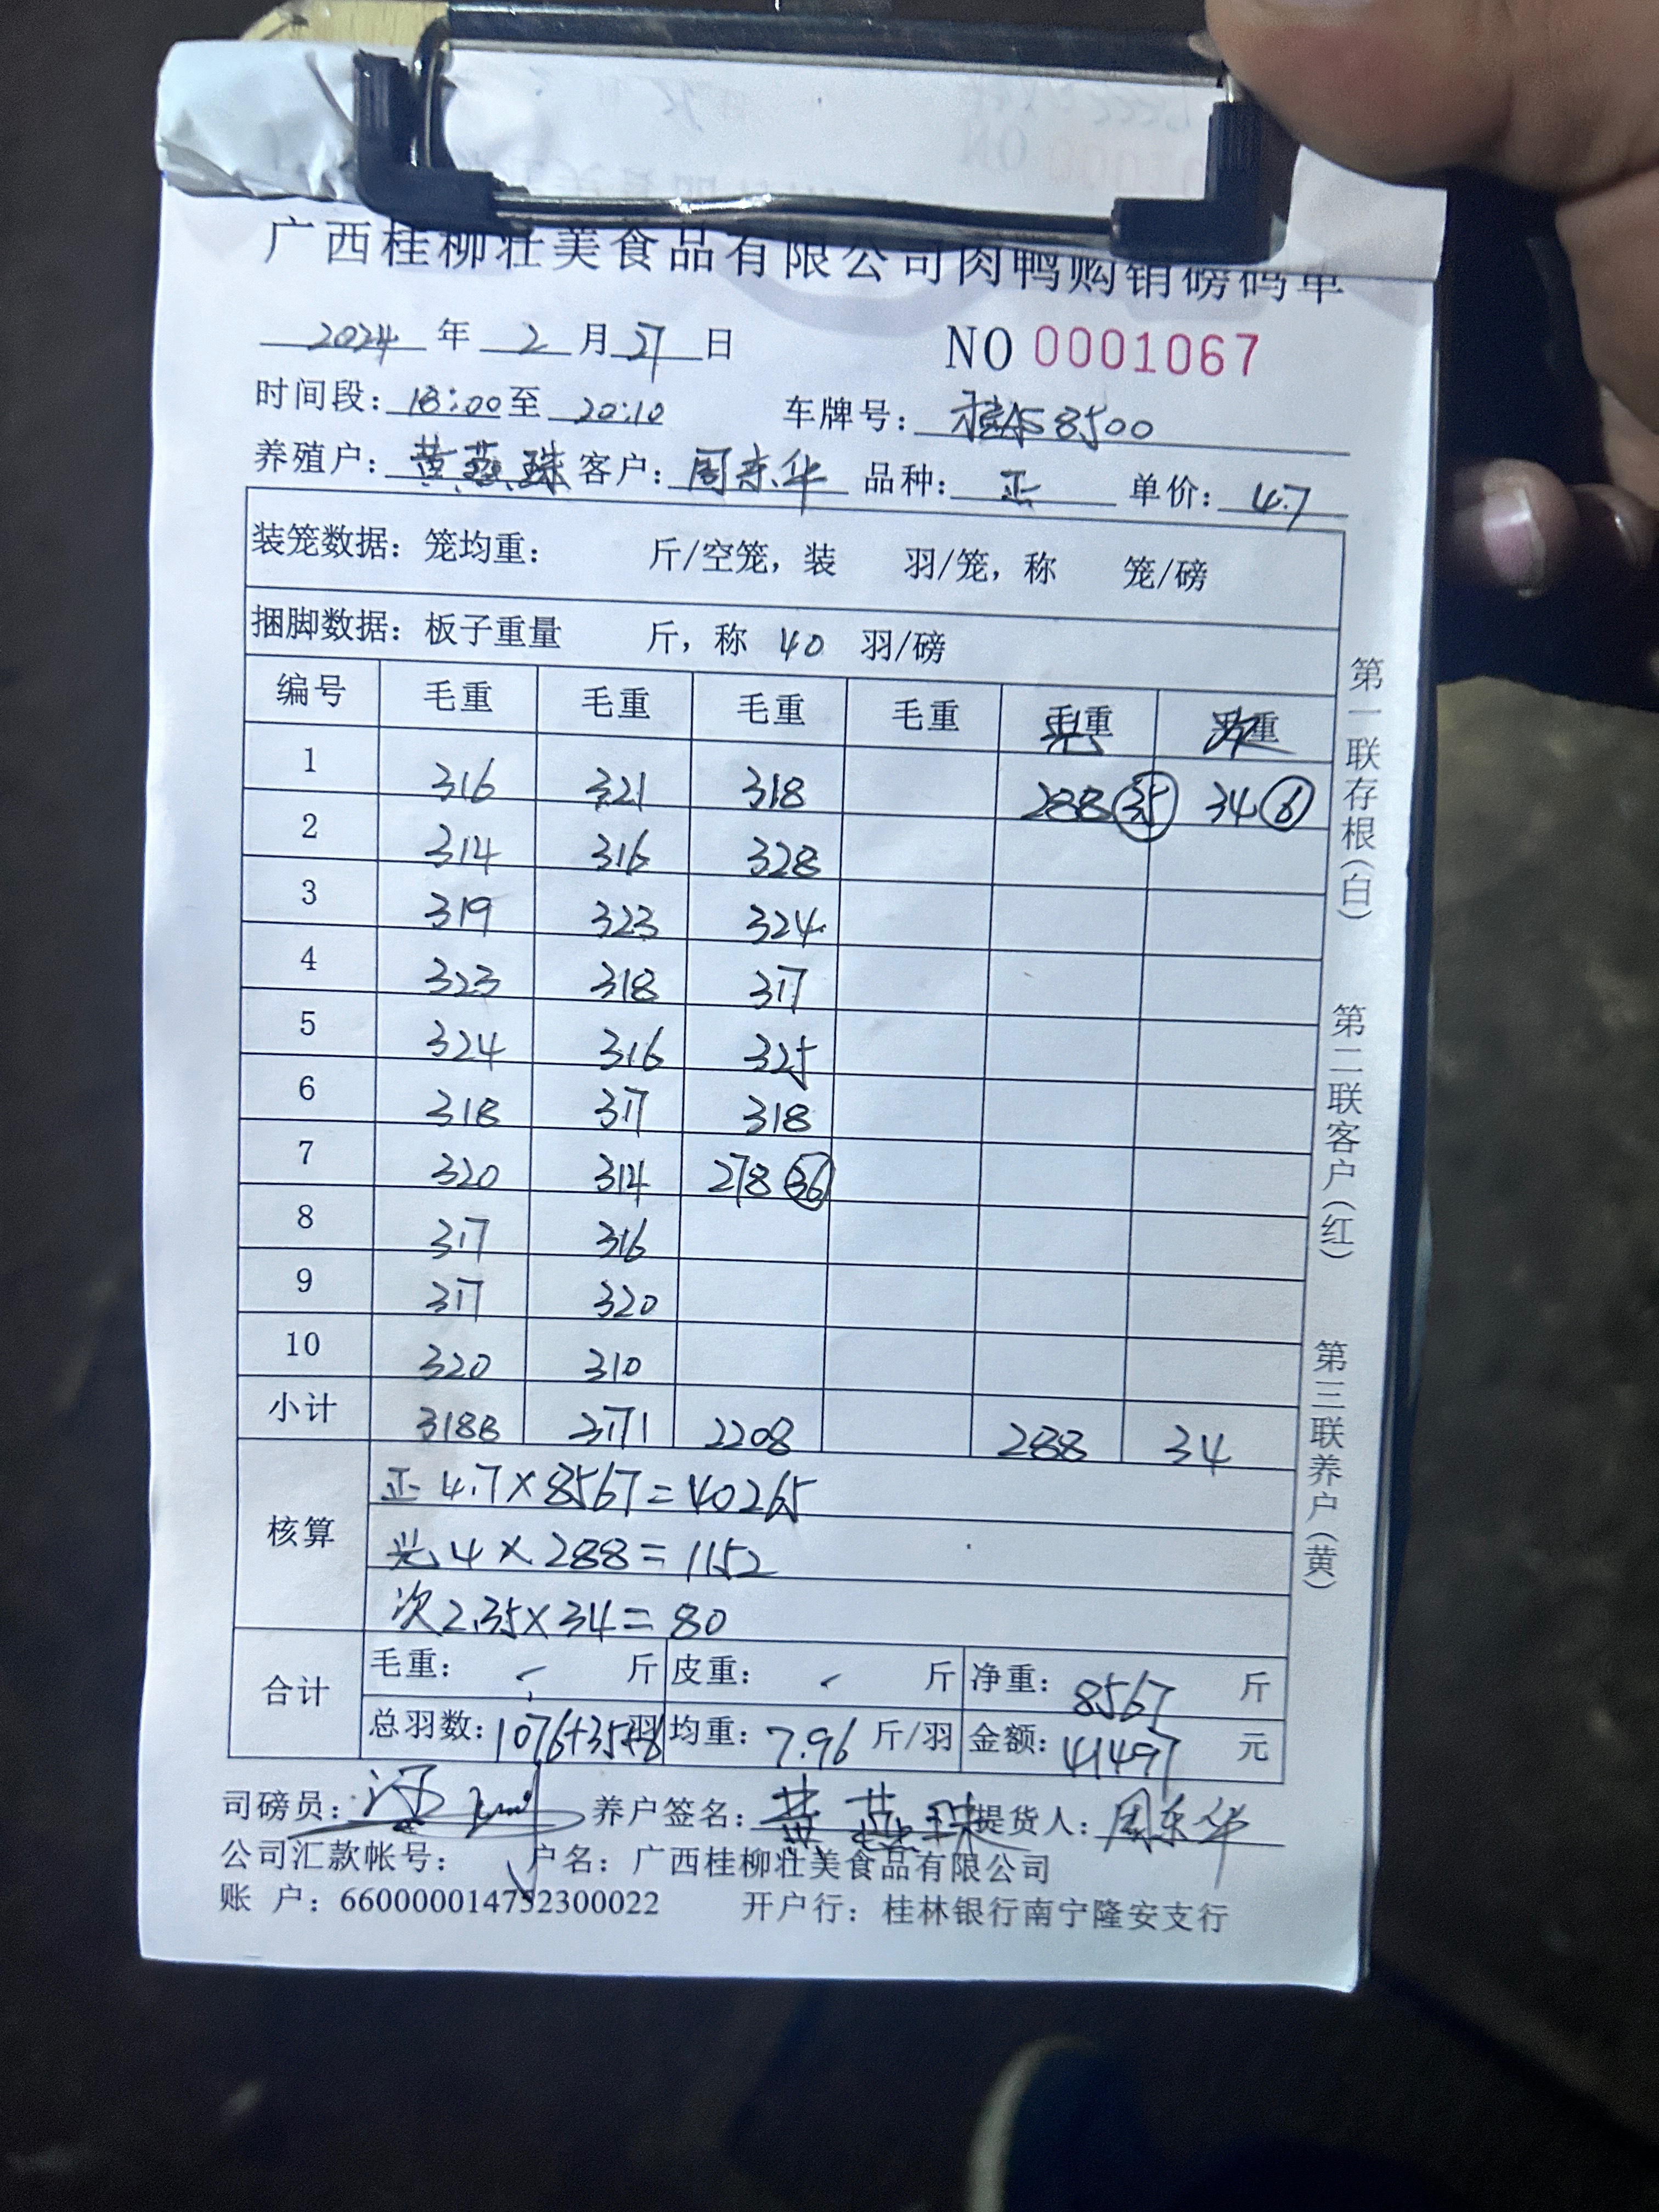 广西桂柳壮美食品有限公司肉鸭购销磅码单
2024 年 2 月 27 日 NO 0001067
时间段: 18:00 至 20:10 车牌号: 桂A58500
养殖户: 黄燕珠 客户: 周东华 品种: 正 单价: 4.7
装笼数据: 笼均重: 斤/空笼, 装 羽/笼, 称 笼/磅
捆脚数据: 板子重量 斤, 称 40 羽/磅
编号 毛重 毛重 毛重 毛重 重 重
1 316 321 318 288 35 34 6
2 314 316 328
3 319 323 324
4 323 318 317
5 324 316 325
6 318 317 318
7 320 314 278 36
8 317 316
9 317 320
10 320 310
小计 3188 3171 2208 288 34
核算
正 4.7×8567=40265
4×288=1152
次 2.35×34=80
合计
毛重: 斤 皮重: 斤 净重: 8567 斤
总羽数: 1076+35+6 羽 均重: 7.96 斤/羽 金额: 41497 元
司磅员: 养户签名: 黄燕珠 提货人: 周东华
公司汇款帐号: 户名: 广西桂柳壮美食品有限公司
账 户: 660000014752300022 开户行: 桂林银行南宁隆安支行
第一联存根(白)
第二联客户(红)
第三联养户(黄)